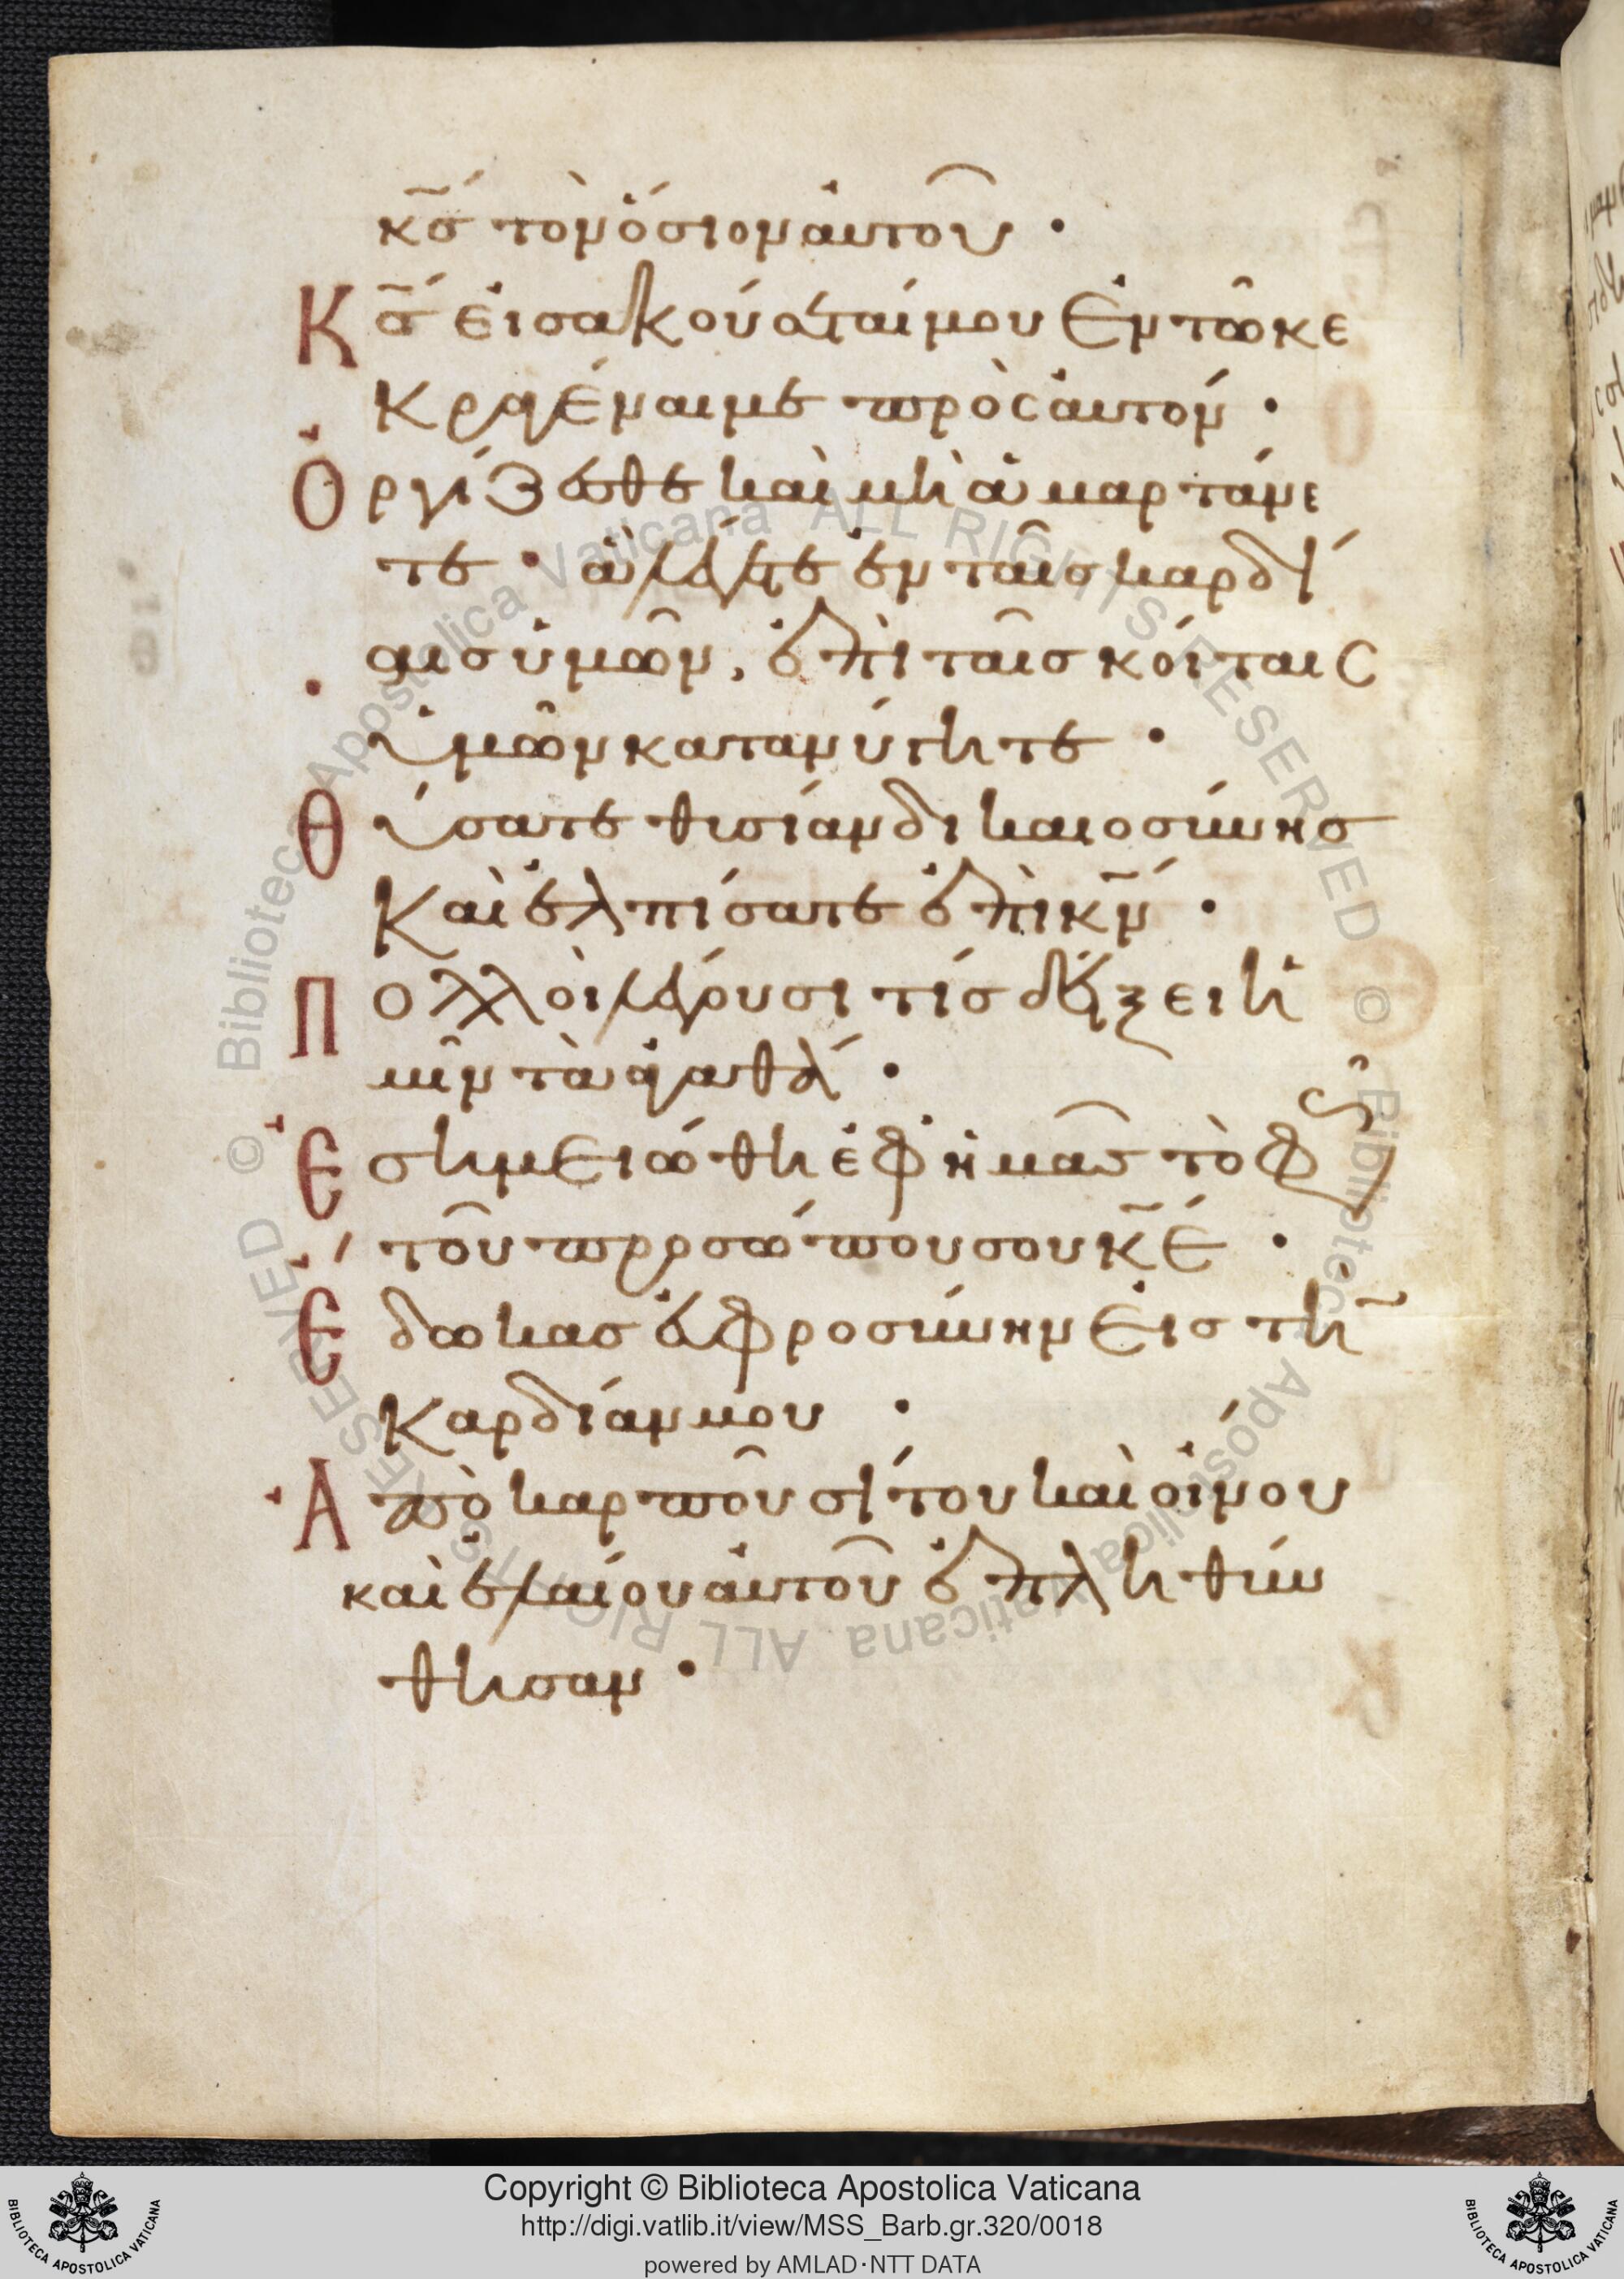 κ̅ς̅ τὸν ὅσιον αὐτοῦ ·
Κ̅ς̅ εἰσακούσεταί μου ἐν τῶ κε
κραγέναι με πρὸς αὐτόν ·
Ὀργίζεσθε καὶ μὴ ἁμαρτάνε
τε · ἃ λέγετε ἐν ταῖς καρδί
αις ὑμῶν, ἐπὶ ταῖς κοίταις
ὑμῶν κατανύγητε ·
Θύσατε θυσίαν δικαιοσύνης
καὶ ἐλπίσατε ἐπὶ κ̅ν̅ ·
Πολλοὶ λέγουσι τίς δείξει ἡ
μῖν τὰ ἀγαθά ·
Ἐσημειώθη ἐφ ἡμᾶς τὸ φῶς
τοῦ προσώπου σου κ̅ε̅ ·
Ἔδωκας εὐφροσύνην εἰς τὴν
καρδίαν μου ·
Ἀπὸ καρποῦ σίτου καὶ οἴνου
καὶ ἐλαίου αὐτοῦ ἐπληθύν
θησαν ·
Copyright © Biblioteca Apostolica Vaticana
http://digi.vatlib.it/view/MSS_Barb.gr.320/0018
powered by AMLAD·NTT DATA
BIBLIOTECA APOSTOLICA VATICANA
BIBLIOTECA APOSTOLICA VATICANA
© Biblioteca Apostolica Vaticana ALL RIGHTS RESERVED
© Biblioteca Apostolica Vaticana ALL RIGHTS RESERVED